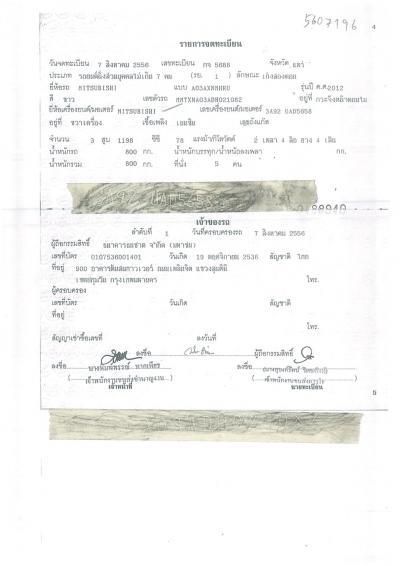 5607196
4
รายการจดทะเบียน
วันจดทะเบียน 7 สิงหาคม 2556 เลขทะเบียน กจ 5688 จังหวัด แพร่
ประเภท รถยนต์นั่งส่วนบุคคลไม่เกิน 7 คน (รย. 1 ) ลักษณะ เก๋งสองตอน
ยี่ห้อรถ MITSUBISHI แบบ รุ่นปี ค.ศ.2012
สี ขาว เลขตัวรถ อยู่ที่
ยี่ห้อเครื่องยนต์/มอเตอร์ MITSUBISHI เลขเครื่องยนต์/มอเตอร์ 3A92
อยู่ที่ ขวาเครื่อง เชื้อเพลิง เลขถังแก๊ส
จำนวน 3 สูบ 1198 ซีซี 78 แรงม้า/กิโลวัตต์ 2 เพลา 4 ล้อ ยาง 4 เส้น
น้ำหนักรถ 800 กก. น้ำหนักบรรทุก/น้ำหนักลงเพลา กก.
น้ำหนักรวม 800 กก. ที่นั่ง 5 คน
เจ้าของรถ
ลำดับที่ 1 วันที่ครอบครองรถ 7 สิงหาคม 2556
ผู้ถือกรรมสิทธิ์ ธนาคารธนชาต จำกัด (มหาชน)
เลขที่บัตร 0107536001401 วันเกิด 19 พฤศจิกายน 2536 สัญชาติ ไทย
ที่อยู่ 900 อาคารต้นสนทาวเวอร์ ถนนเพลินจิต แขวงลุมพินี
เขตปทุมวัน กรุงเทพมหานคร โทร.
ผู้ครอบครอง
เลขที่บัตร วันเกิด สัญชาติ
ที่อยู่
โทร.
สัญญาเช่าซื้อเลขที่ ลงวันที่
ลงชื่อ ผู้ถือกรรมสิทธิ์
ลงชื่อ ลงชื่อ
เจ้าหน้าที่ นายทะเบียน
5